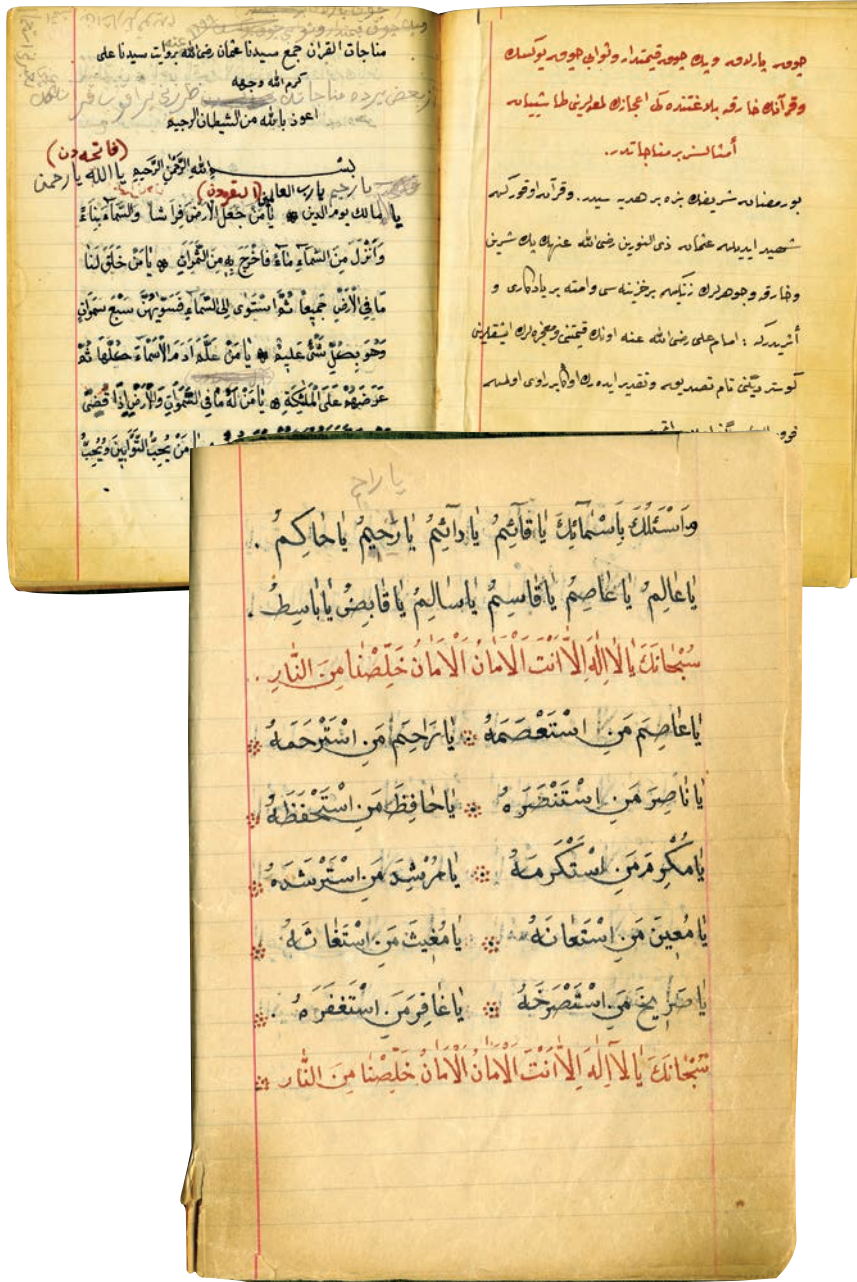 چوق پارلاق و پك چوق قیمتدار و ثوابی چوق یوكسك
و قرآنك خارقه بلاغتنده كی اعجازك لمعه لرینی طاشییان
أمثالسز بر مناجاتدر.
بو رمضان شریفك بزه بر هدیه سیدر. و قرآن اوقوركن
شهید ایدیلن عثمان ذی النورین رضی الله عنهك پك شیرین
و خارقه و جوهرلرك زنكین بر خزینه سی و امته بر یادكاری و
أثریدركه : امام علی رضی الله عنه اونك قیمتنی و معجزه لرك ایشقلرینی
كوستردیگنی تام تصدیق و تقدیر ایده رك اوكا بر راوی اولمش
مناجات القرآن جمع سیدنا عثمان رضی الله بروایت سیدنا علی
كرم الله وجهه
اعوذ بالله من الشیطان الرجیم
(فاتحه دن)
بســم الله الرَّحْمٰنِ الرَّحٖیمِ یا الله یا رحمن
یا رحیم یا رب العالمین (البقره دن)
یا مالك یوم الدین * یَامَنْ جَعَلَ الْاَرْضَ فِرَاشاً وَالسَّمَآءَ بِنَآءً
وَاَنْزَلَ مِنَ السَّمَآءِ مَآءً فَاَخْرَجَ بِهٖ مِنَ الثَّمَرَاتِ * یَامَنْ خَلَقَ لَنَا
مَا فِی الْاَرْضِ جَمٖیعاً ثُمَّ اسْتَوٰی اِلَی السَّمَآءِ فَسَوّٰیهُنَّ سَبْعَ سَمٰوَاتٍ
وَهُوَ بِكُلِّ شَیْءٍ عَلٖیمٌ * یَا مَنْ عَلَّمَ اٰدَمَ الْاَسْمَآءَ كُلَّهَا ثُمَّ
عَرَضَهُمْ عَلَی الْمَلٰٓئِكَةِ * یَامَنْ لَهُ مَا فِی السَّمٰوَاتِ وَالْاَرْضِ اِذَا قَضٰٓی
مَنْ یُحِبُّ التَّوَّابٖینَ وَیُحِبُّ
یا راحم
وَاَسْئَلُكَ بِاَسْمَآئِكَ یَا قَآئِمُ یَا دَآئِمُ یَا رَحٖیمُ یَا حَاكِمُ .
یَا عَالِمُ یَا عَاصِمُ یَا قَاسِمُ یَا سَالِمُ یَا قَابِضُ یَا بَاسِطُ .
سُبْحَانَكَ یَا لَآ اِلٰهَ اِلَّآ اَنْتَ الْاَمَانُ الْاَمَانُ خَلِّصْنَا مِنَ النَّارِ .
یَا عَاصِمَ مَنِ اسْتَعْصَمَهُ * یَا رَاحِمَ مَنِ اسْتَرْحَمَهُ *
یَا نَاصِرَ مَنِ اسْتَنْصَرَهُ * یَا حَافِظَ مَنِ اسْتَحْفَظَهُ *
یَا مُكْرِمَ مَنِ اسْتَكْرَمَهُ * یَا مُرْشِدَ مَنِ اسْتَرْشَدَهُ *
یَا مُعٖینَ مَنِ اسْتَعَانَهُ * یَا مُغٖیثَ مَنِ اسْتَغَاثَهُ *
یَا صَرٖیخَ مَنِ اسْتَصْرَخَهُ * یَا غَافِرَ مَنِ اسْتَغْفَرَهُ *
سُبْحَانَكَ یَا لَآ اِلٰهَ اِلَّآ اَنْتَ الْاَمَانُ الْاَمَانُ خَلِّصْنَا مِنَ النَّارِ *